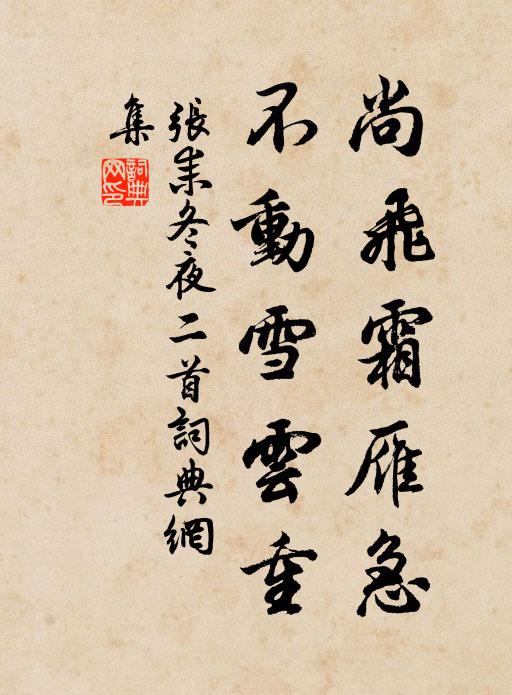 尚飛霜雁急
不動雪雲重
張耒冬夜二首詞典網
集
詞典
网印